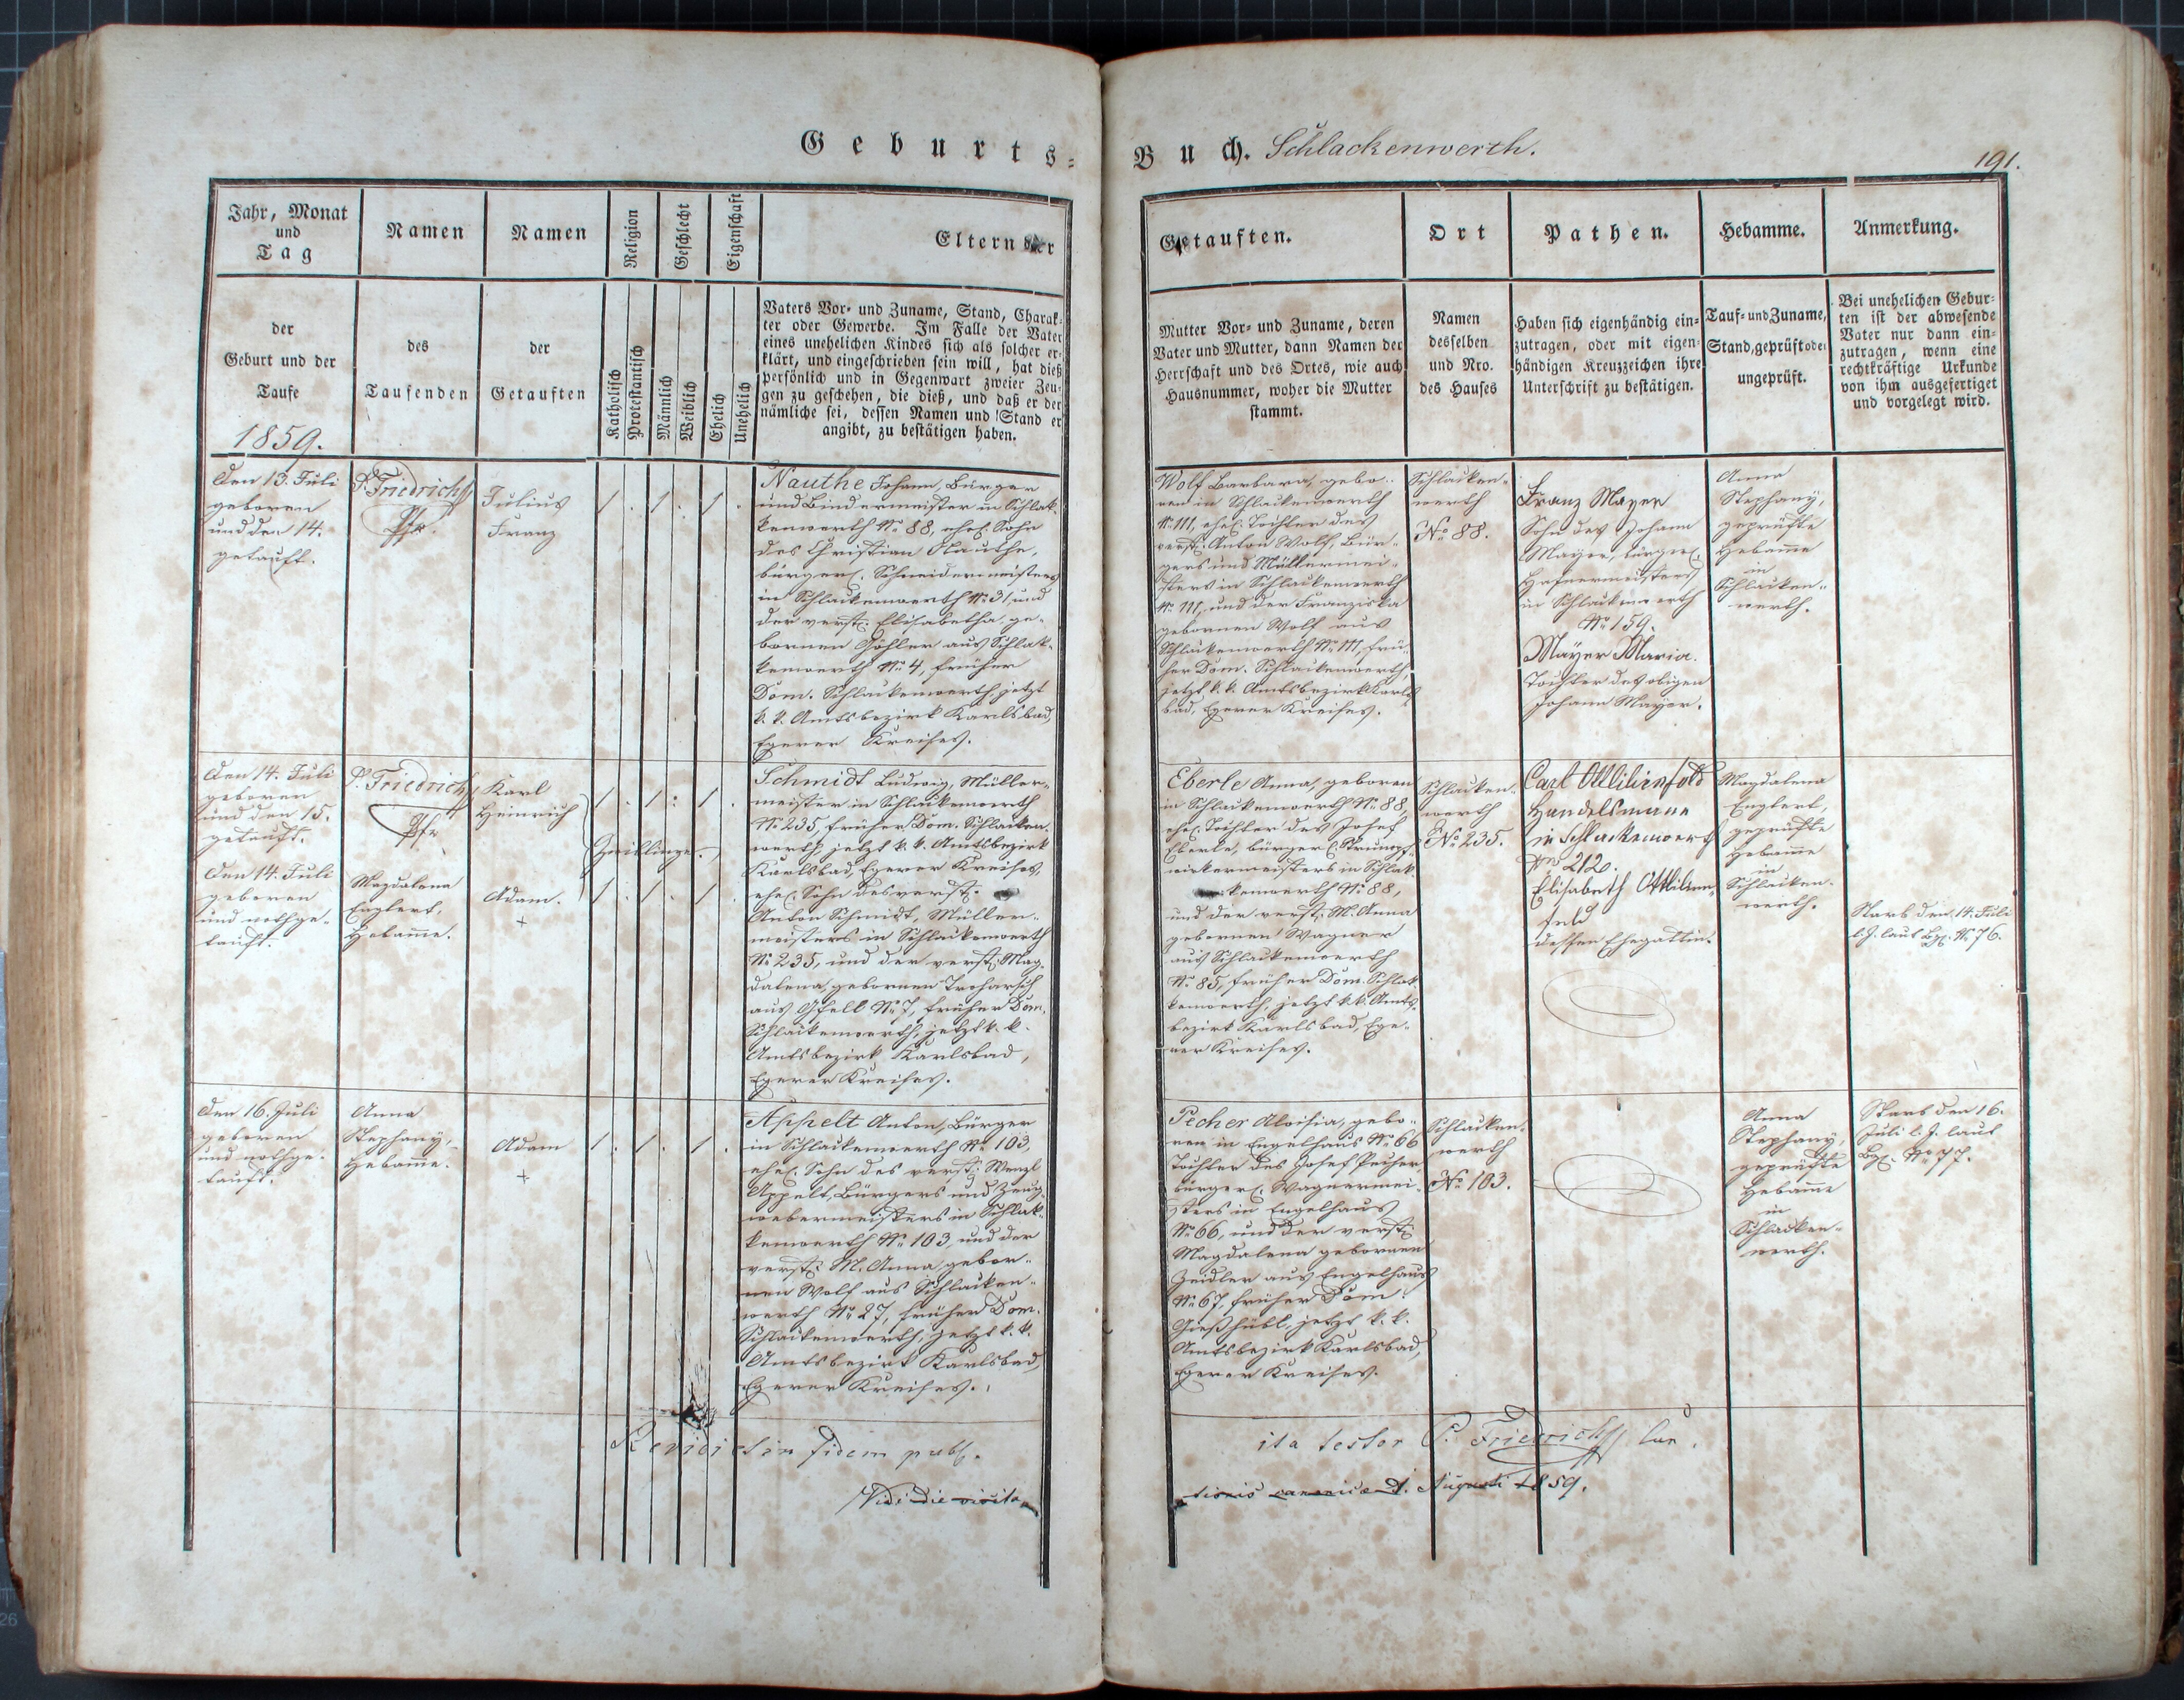 Geburts-
Buch. Schlackenwerth.
191.
Jahr, Monat
und
Tag
der
Geburt und der
Taufe
1859.
Namen
des
Taufenden
Namen
der
Getauften
Religion
Katholisch
Protestantisch
Geschlecht
Männlich
Weiblich
Eigenschaft
Ehelich
Unehelich
Eltern der
Vaters Vor- und Zuname, Stand, Charak-
ter oder Gewerbe. Im Falle der Vater
eines unehelichen Kindes sich als solcher er-
klärt, und eingeschrieben sein will, hat dieß
persönlich und in Gegenwart zweier Zeu-
gen zu geschehen, die dieß, und daß er der
nämliche sei, dessen Namen und Stand er
angibt, zu bestätigen haben.
Getauften.
Mutter Vor- und Zuname, deren
Vater und Mutter, dann Namen der
Herrschaft und des Ortes, wie auch
Hausnummer, woher die Mutter
stammt.
Ort
Namen
desselben
und Nro.
des Hauses
Pathen.
Haben sich eigenhändig ein-
zutragen, oder mit eigen-
händigen Kreuzzeichen ihre
Unterschrift zu bestätigen.
Hebamme.
Tauf- und Zuname,
Stand, geprüft oder
ungeprüft.
Anmerkung.
Bei unehelichen Gebur-
ten ist der abwesende
Vater nur dann ein-
zutragen, wenn eine
rechtkräftige Urkunde
von ihm ausgefertiget
und vorgelegt wird.
Den 13. Juli
geboren
und den 14.
getauft.
P. Friedrich
Pfr.
Julius
Franz
Nauthe Johann, Bürger
und Bindermeister in Schlak-
kenwerth No 88, ehel. Sohn
des Christian Nauthe,
bürgerl. Schneidermeisters
in Schlackenwerth No 31, und
der verst. Elisabetha, ge-
bornen Göhler aus Schlak-
kenwerth No 4, früher
Dom. Schlackenwerth, jetzt
k. k. Amtsbezirk Karlsbad,
Egerer Kreises.
Wolf Barbara, gebo-
ren in Schlackenwerth
No 111, ehel. Tochter des
verst. Anton Wolf, Bür-
gers und Müllermei-
sters in Schlackenwerth
No 111, und der Franziska
gebornen Wolf aus
Schlackenwerth No 111, frü-
her Dom. Schlackenwerth,
jetzt k. k. Amtsbezirk Karls-
bad, Egerer Kreises.
Schlacken-
werth
No 88.
Franz Mayer
Sohn des Johann
Mayer, bürgerl.
Hafnermeisters
in Schlackenwerth
No 159.
Mayer Maria.
Tochter des obigen
Johann Mayer.
Anna
Stephany,
geprüfte
Hebamme
in
Schlacken-
werth.
Den 14. Juli
geboren
und den 15.
getauft.
P. Friedrich
Pfr
Karl
Heinrich
Zwillinge.
Den 14. Juli
geboren
und nothge-
tauft.
Magdalena
Englert,
Hebamme.
Adam.
+
Schmidt Ludwig, Müller-
meister in Schlackenwerth
No 235, früher Dom. Schlacken-
werth, jetzt k. k. Amtsbezirk
Karlsbad, Egerer Kreises,
ehel. Sohn des verst.
Anton Schmidt, Müller-
meisters in Schlackenwerth
No 235, und der verst. Mag-
dalena, gebornen
aus Gfell No 7, früher Dom.
Schlackenwerth, jetzt k. k.
Amtsbezirk Karlsbad,
Egerer Kreises.
Eberle Anna, geboren
in Schlackenwerth No 88,
ehel. Tochter des Josef
Eberle, bürgerl. Strumpf-
wirkermeisters in Schlak-
kenwerth No 88,
und der verst. M. Anna
gebornen Wagner
aus Schlackenwerth
No 85, früher Dom. Schlak-
kenwerth, jetzt k. k. Amts-
bezirk Karlsbad, Ege-
rer Kreises.
Schlacken-
werth
No 235.
Carl Ottilienfeld
Handelsmann
in Schlackenwerth
No 212.
Elisabeth Ottilien-
feld
dessen Ehegattin.
Magdalena
Englert,
geprüfte
Hebamme
in
Schlacken-
werth.
Starb den 14. Juli
l. J. laut No 76.
Den 16. Juli
geboren
und nothge-
tauft.
Anna
Stephany,
Hebamme.
Adam
+
Appelt Anton, Bürger
in Schlackenwerth No 103,
ehel. Sohn des verst. Wenzl
Appelt, Bürgers und Zeug-
webermeisters in Schlak-
kenwerth No 103, und der
verst. M. Anna, gebor-
nen Wolf aus Schlacken-
werth No 27, früher Dom.
Schlackenwerth, jetzt k. k.
Amtsbezirk Karlsbad,
Egerer Kreises.
Pecher Aloisia, gebo-
ren in Engelhaus No 66
Tochter des Josef Pecher,
bürgerl. Wagnermei-
sters in Engelhaus
No 66, und der verst.
Magdalena gebornen
Zeidler aus Engelhaus
No 67, früher Dom.
Gießhübl, jetzt k. k.
Amtsbezirk Karlsbad,
Egerer Kreises.
Schlacken-
werth
No 103.
Anna
Stephany,
geprüfte
Hebamme
in
Schlacken-
werth.
Starb den 16.
Juli l. J. laut
No 77.
Revidi et in fidem publ.
ita testor P. Friedrich
Vidi die visita-
tionis canonicae 1. Augusti 1859.